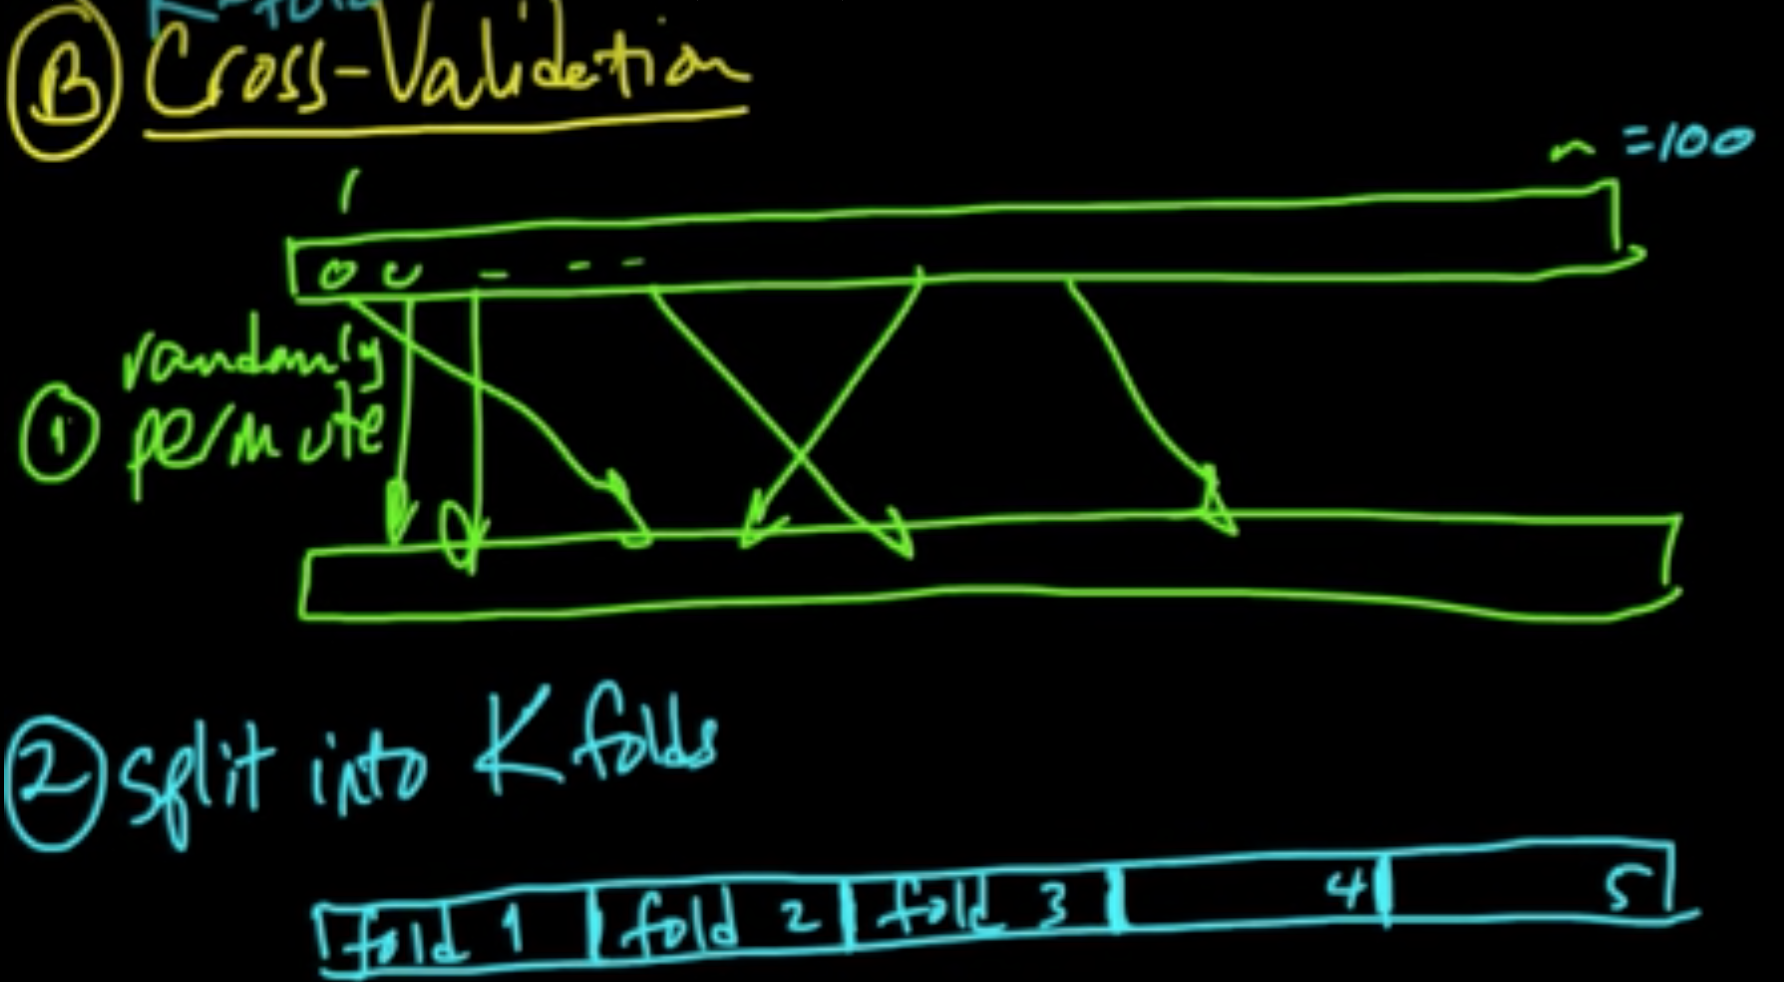 K-fold
B Cross-Validation
1 n =100
randomly
① permute
② split into K folds
fold 1 fold 2 fold 3 4 5